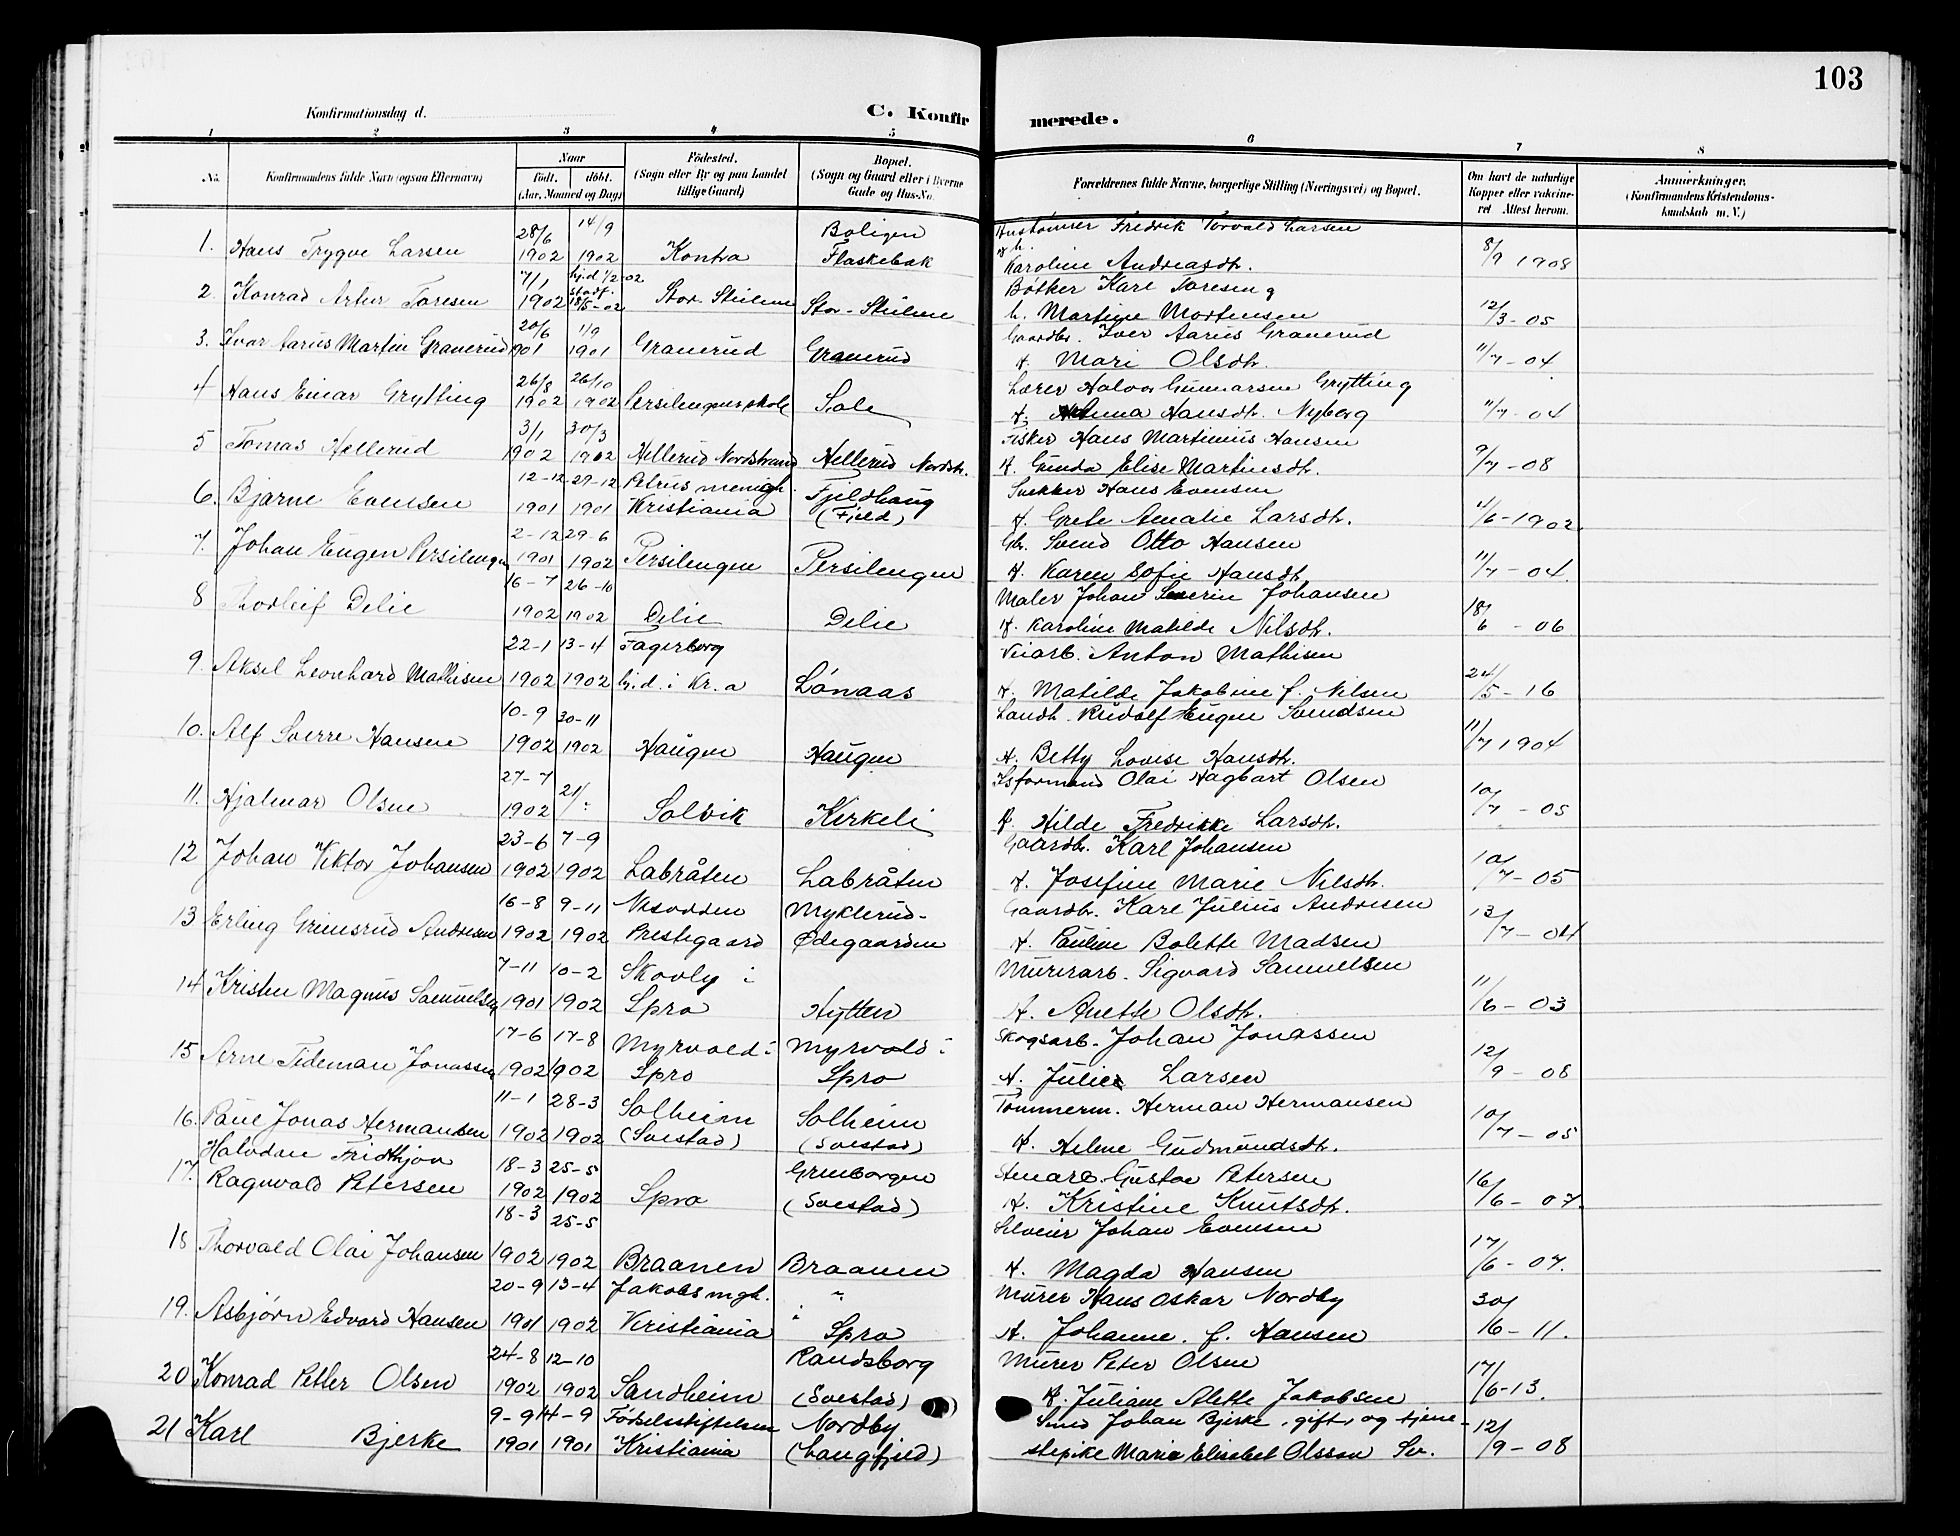 103
Konfirmationsdag d.
C. Konfirmerede.
1 2 3 4 5 6 7 8
No.
Konfirmandens fulde Navn (ogsaa Efternavn)
Naar
født. døbt.
(Aar, Maaned og Dag)
Fødested.
(Sogn eller By og paa Landet
tillige Gaard)
Bopæl.
(Sogn og Gaard eller i Byerne
Gade og Hus-No.
Forældrenes fulde Navne, borgerlige Stilling (Næringsvei) og Bopæl.
Om havt de naturlige
Kopper eller vakcine-
ret Attest herom.
Anmerkninger.
(Konfirmandens Kristendoms-
kundskab m. V.)
28/6 14/9 Boligen Fredrik Torvald Larsen
1. Hans Trygve Larsen 1902 1902 Kontra Flaskebæk Karoline Andreasdtr. 8/9 1908
7/1 hj.d. 1/2 02 stadf. Bøtker Karl Toresen og
2. Konrad Artur Toresen 1902 18/5-02 Stor Skilene Stor-Skilene h. Martine Mortensen 12/3-05
20/6 1/9 Gaardbr. Iver Aarius Granerud
3. Ivar Aarius Martin Granerud 1901 1901 Granerud Granerud H. Mari Olsdtr. 11/7-04
26/8 26/10 Lærer Halvor Gunnarsen Grytting
4 Hans Einar Grytting 1902 1902 Persilengen skole Sole H. Anna Hansdtr. Nyborg 11/7-04
3/1 30/3 Fisker Hans Martinius Hansen
5 Tomas Hellerud 1902 1902 Hellerud Nordstrand Hellerud Nordstr. H. Gunda Elise Martinsdtr. 9/7-08
12-12 29-12 Petrus menigh. Fjeldhaug Snekker Hans Evensen
6. Bjarne Evensen 1901 1901 Kristiania (Fjeld) H. Grete Amalie Larsdtr. 4/6-1902
2-12 29-6 Gbr. Svend Otto Hansen
7. Johan Eugen Persilengen 1901 1902 Persilengen Persilengen H. Karen Sofie Hansdtr. 11/7-04
16-7 26-10 Maler Johan Severin Johansen
8 Thorleif Delie 1902 1902 Delie Delie H. Karoline Matilde Nilsdtr. 18/6-06
22-1 13-4 Fagerborg Veiarb. Anton Mathisen
9. Aksel Leonhard Mathisen 1902 1902 hj.d. i Kr.a Lønaas H. Matilde Jakobine f. Nilsen 24/5-16
10-9 30-11 Landh. Rudolf Eugen Svendsen
10. Alf Sverre Hansen 1902 1902 Haugen Haugen H. Betty Lovise Hansdtr. 11/7 1904
27-7 21/ Isformand Olai Hagbart Olsen
11. Hjalmar Olsen 1902 Solvik Kirkeli H. Hilde Fredrikke Larsdtr. 10/7-05
23-6 7-9 Gaardbr. Karl Johansen
12 Johan Viktor Johansen 1902 1902 Labråten Labråten H. Josefine Marie Nilsdtr. 10/7-05
16-8 9-11 Nesodden Myklerud- Gaardbr. Karl Julius Andresen
13 Erling Grimsrud Andresen 1902 1902 Prestegaard Ødegaarden H. Pauline Bolette Madsen 13/7-04
7-11 10-2 Skovly i Murerarb. Sigvard Samuelsen
14 Kristen Magnus Samuelsen 1901 1902 Spro Hytten H. Anette Olsdtr. 11/6-03
17-6 17-8 Myrvold i Myrvold i Skogsarb. Johan Jonassen
15 Arne Tideman Jonassen 1902 1902 Spro Spro H. Julie Larsen 12/9-08
11-1 28-3 Solheim Solheim Tømmerm. Herman Hermansen
16. Paul Jonas Hermansen 1902 1902 (Svestad) (Svestad) H. Helene Gudmundsdtr. 10/7-05
Halvdan Fridthjov 18-3 25-5 Grenborgen Gustav Petersen
17. Ragnvald Petersen 1902 1902 Spro (Svestad) H. Kristine Knutsdtr. 16/6-07
18-3 25-5 Selveier Johan Evensen
18 Thorvald Olai Johansen 1902 1902 Braanen Braanen H. Magda Hansen 17/6-07.
20-9 13-4 Jakobs mgh. " Murer Hans Oskar Nordby
19. Asbjørn Edvard Hansen 1901 1902 Kristiania i Spro H. Johanne f. Hansen 30/6-11.
24-8 12-10 Randsborg Murer Peter Olsen
20 Konrad Petter Olsen 1902 1902 Sandheim (Svestad) H. Juliane Alette Jakobsen 17/6-13.
9-9 14-9 Fødselsstiftelsen Nordby Smed Johan Bjerke, gift, og tjene-
21 Karl Bjerke 1901 1901 Kristiania (Langfjeld) stepike Marie Elisabet Olsson Sv. 12/9-08